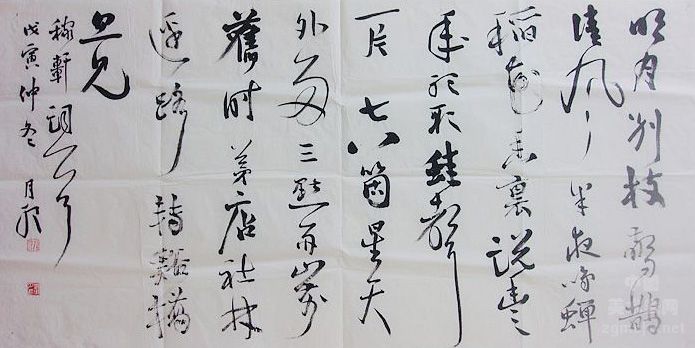 明月别枝驚鵲
清风半夜鳴蝉
稻花香裏説豊
年聽取蛙聲
一片七八箇星天
外两三點雨山前
舊時茅店社林
邊路轉谿橋
忽見
稼軒詞
戊寅仲冬月